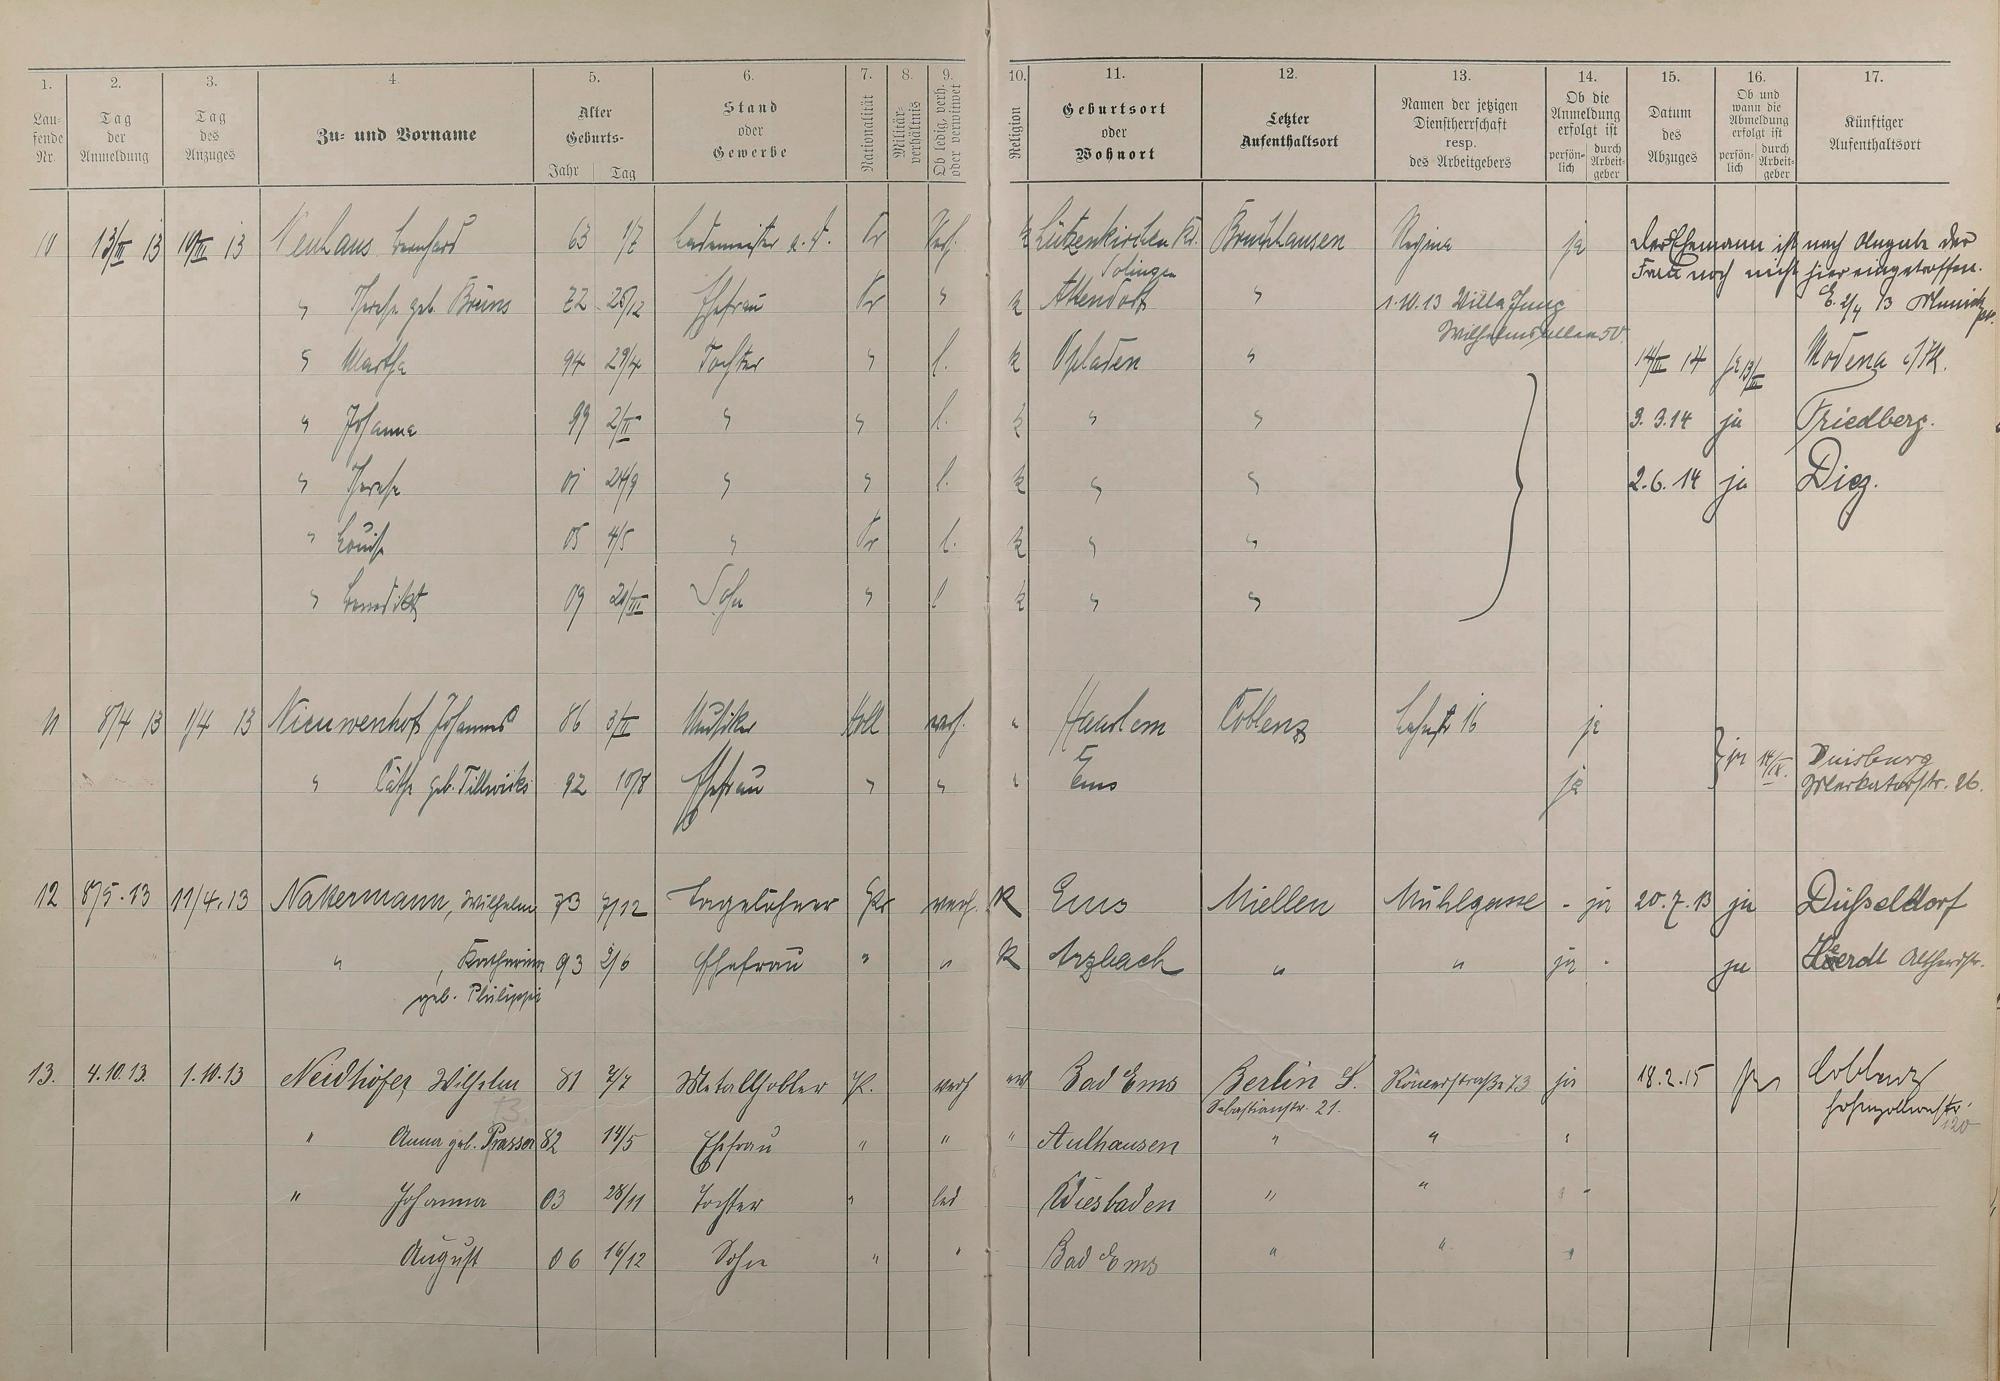 1. 2. 3. 4. 5. 6. 7. 8. 9. 10. 11. 12. 13. 14. 15. 16. 17.
Lau-
fende
Nr.
Tag
der
Anmeldung
Tag
des
Anzuges
Zu- und Vorname
Alter
Geburts-
Jahr Tag
Stand
oder
Gewerbe
Nationalität
Militär-
verhältnis
Ob ledig, verh.
oder verwitwet
Religion
Geburtsort
oder
Wohnort
Letzter
Aufenthaltsort
Namen der jetzigen
Dienstherrschaft
resp.
des Arbeitgebers
Ob die
Anmeldung
erfolgt ist
persön-
lich
durch
Arbeit-
geber
Datum
des
Abzuges
Ob und
wann die
Abmeldung
erfolgt ist
persön-
lich
durch
Arbeit-
geber
Künftiger
Aufenthaltsort
10 13/III 13 10/III 13 Neuhaus Bernhard 63 1/7 Lademeister a. D. Pr Verh. k Lützenkirchen Kr. Bruchhausen Regina ja Der Ehemann ist nach Angabe der
Solingen Frau noch nicht hier eingetroffen.
" Therese geb. Brüns 72 25/12 Ehefrau Pr " k Attendorf " 1.10.13 Villa Jung E. 2/4 13
Wilhelmsallee 50.
" Martha 94 29/4 Tochter " l. k Opladen " 14/III 14 ja 13/III Modena
" Johanna 99 2/II " " l. k " " 3.3.14 ja Friedberg.
" Therese 01 24/9 " " l. k " " 2.6.14 ja Diez.
" Louise 05 4/5 " Pr l. k " "
" Benedikt 09 21/III Sohn " l k " "
11 8/4 13 1/4 13 Nieuwenhofs Johannes 86 3/II Musiker Holl verh. " Haarlem Coblenz Lahnstr 16 ja
} ja 14/IX. Duisburg
" Cäthe geb. Tillwicks 92 10/8 Ehefrau " " " Ems ja Merkatorstr. 26.
12 8/5.13 11/4.13 Nakermann, Wilhelm 73 7/12 Tagelöhner Pr verh. K Ems Miellen Mühlgasse - ja 20.7.13 ja Düsseldorf
" , Katharina 93 2/6 Ehefrau " " K Arzbach " " ja - ja Heerdt
geb. Philippi
13. 4.10.13. 1.10.13 Neidhöfer Wilhelm 81 7/7 Metallhobler Pr. verh ev Bad Ems Berlin S. Römerstraße 73 ja 18.2.15 ja Coblenz
Sebastianstr. 21. Hohenzollernstr.
120
" Anna geb. Prasser 82 14/5 Ehefrau " " " Aulhausen " " "
" Johanna 03 28/11 Tochter " led Wiesbaden " " "
August 06 16/12 Sohn " " Bad Ems " " "